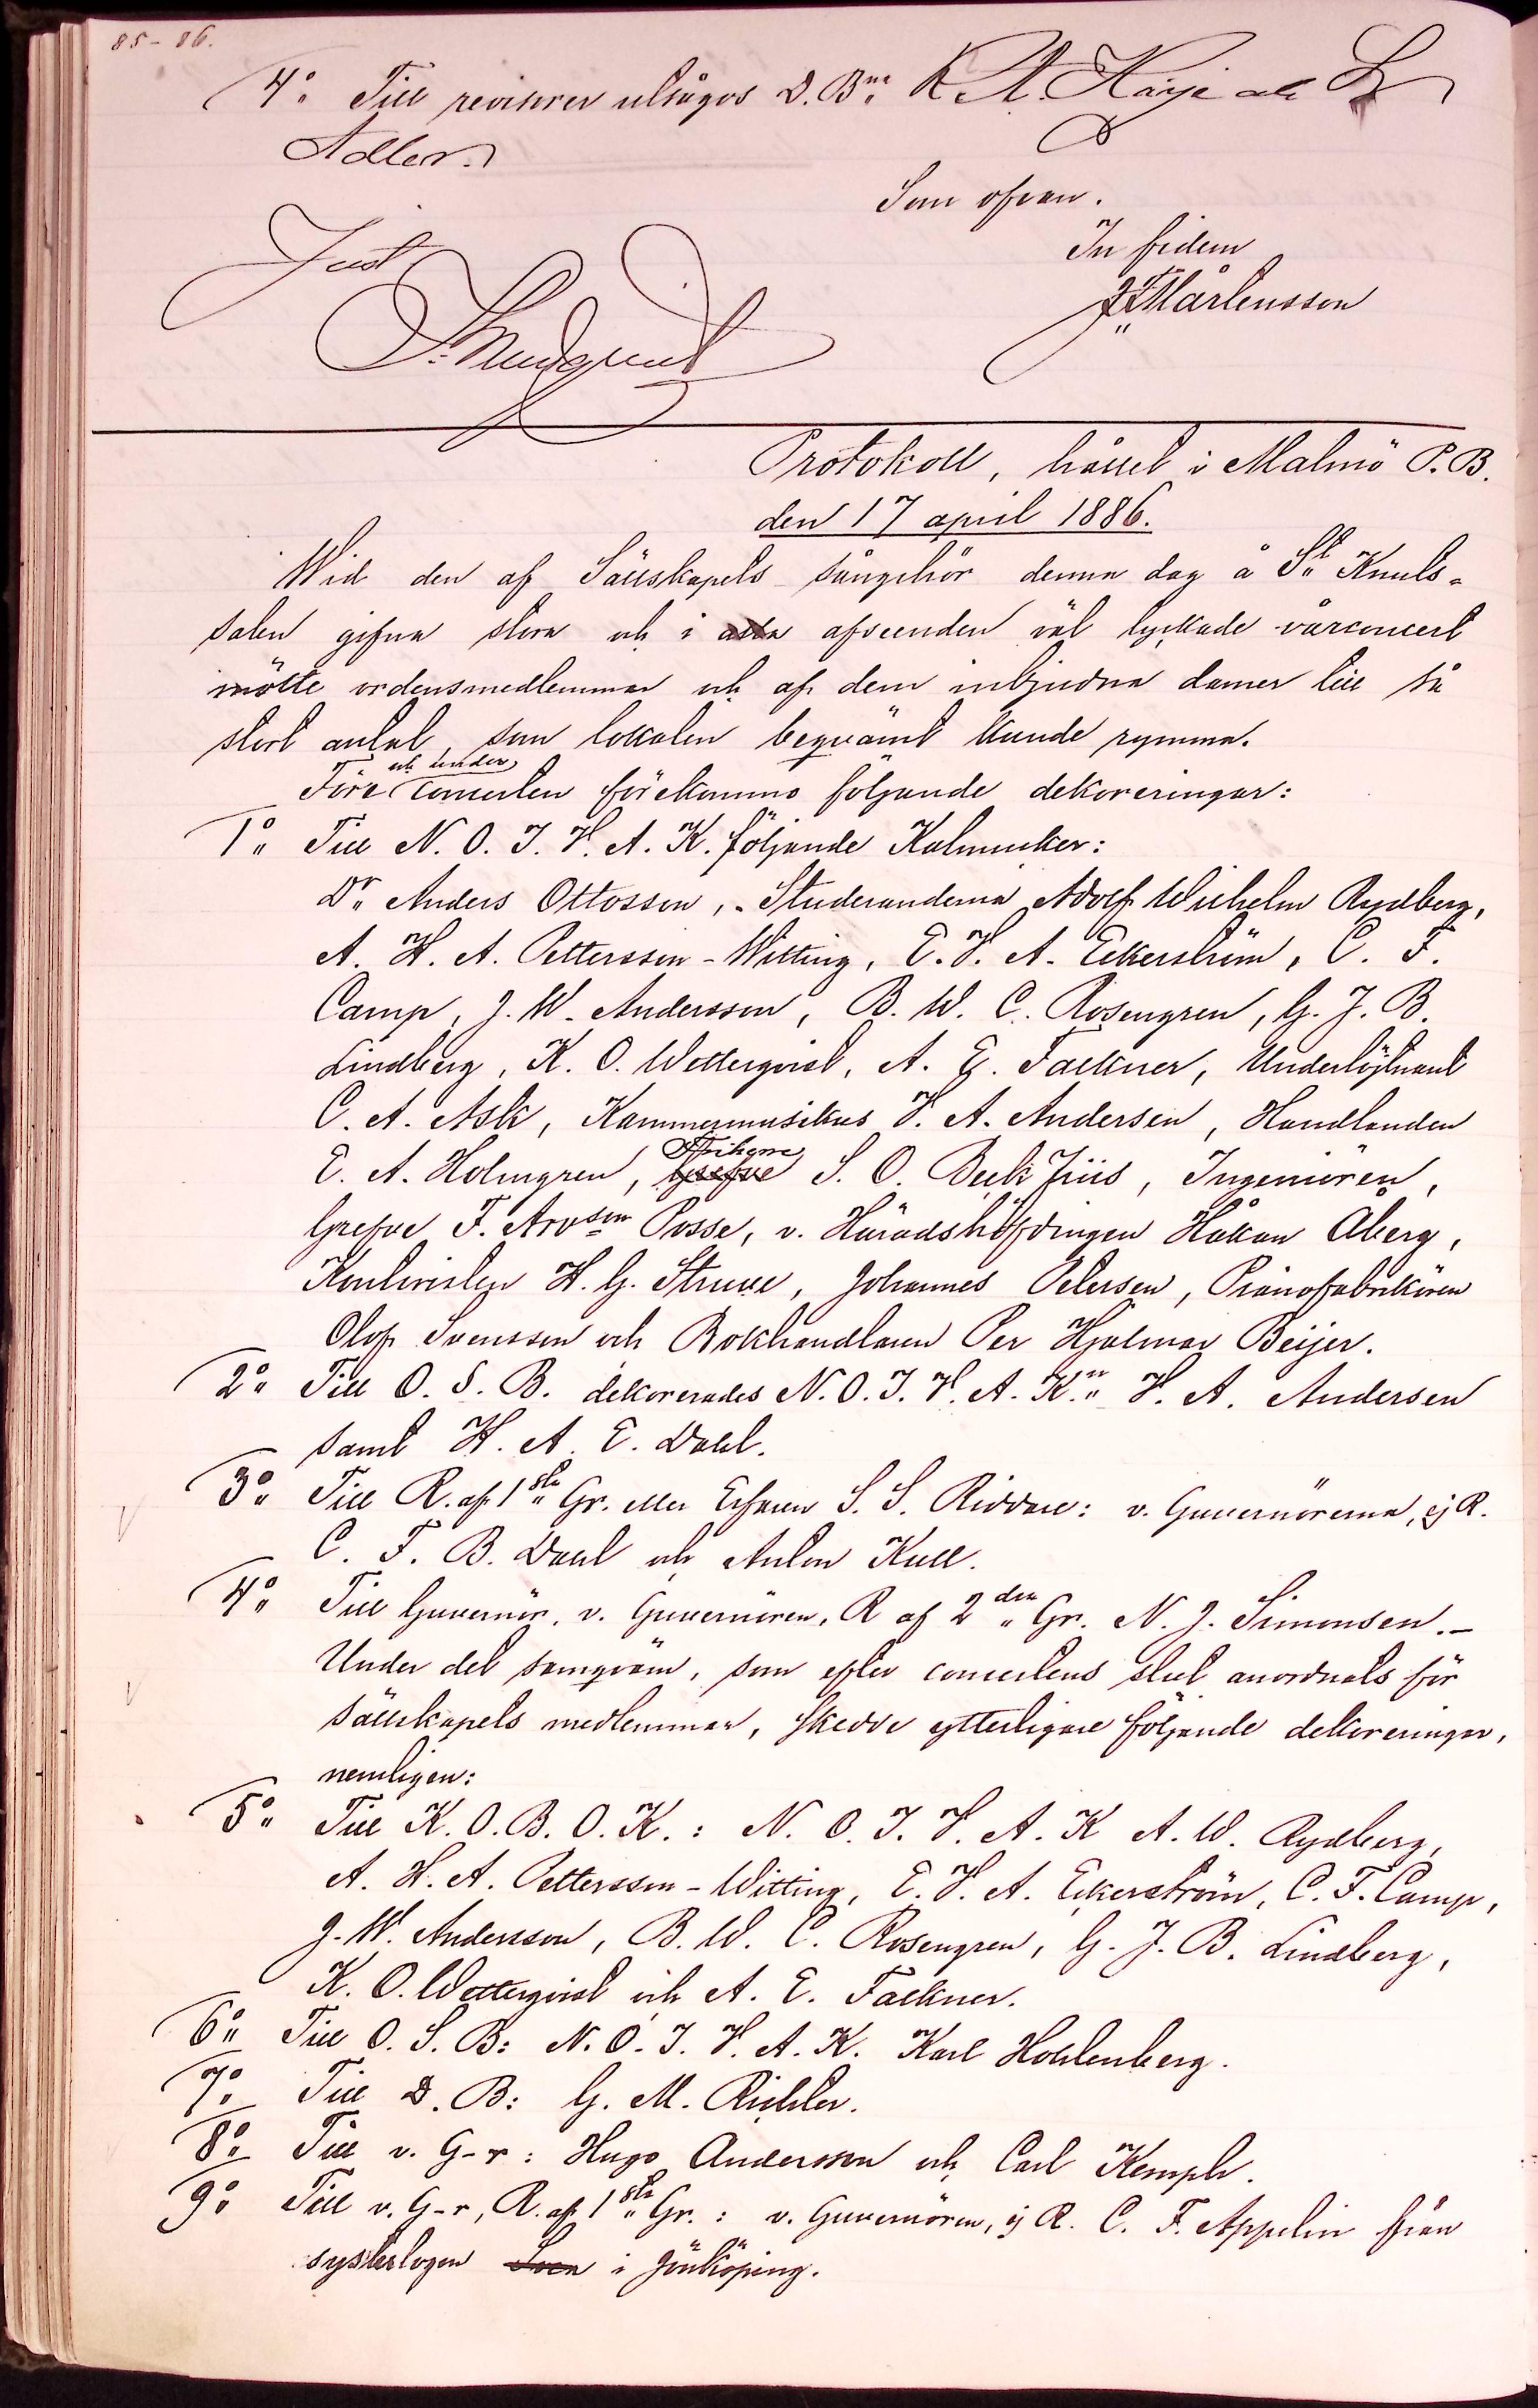 85-86.
4:o Till revisorer utsågos D. B:ne K. A. Kärje och L
Adler.
Som ofvan.
In fidem
J F Mårtensson
Just
Protokoll, hållet i Malmö P. B.
den 17 april 1886.
Wid den af Sällskapets sångchör denna dag å S:t Knuts-
salen gifna stora och i alla afseenden väl lyckade vårconcert
mötte ordensmedlemmar och af dem inbjudna damer till så
stort antal, som lokalen beqvämt kunde rymma.
Före och under concerten förekommo följande dekoreringar:
1:o Till N. O. J. V. A. K. följande Kalmucker:
D:r Anders Ottosson, Studerandena Adolf Wilhelm Rydberg,
A. H. A. Pettersson-Witting, E. V. A. Eckerström, C. F.
Camp, J. W. Andersson, B. W. C. Rosengren, G. J. B.
Lindberg, K. O. Wetterqvist, A. E. Falkner, Underlöjtnant
C. A. Ask, Kammermusikus V. A. Andersen, Handlanden
E. A. Holmgren, Grefve Friherre S. O. Beck Friis, Ingeniören,
Grefve F. Arvson Posse, v. Häradshöfdingen Håkan Åberg,
Kontoristen H. G. Struve, Johannes Petersen, Pianofabrikören
Olof Svensson och Bokhandlaren Per Hjalmar Beijer.
2:o Till O. S. B. dekorerades N. O. J. V. A. K:ne V. A. Andersen
samt H. A. E. Dahl.
3:o Till R. af 1:sta Gr. eller Erfaren S. S. Riddare: v. Guvernörerna, ej R.
C. F. B. Dahl och Anton Kull.
4:o Till Guvernör, v. Guvernören, R af 2:dra Gr. N. J. Simonsen.—
Under det samqväm, som efter concertens slut anordnats för
sällskapets medlemmar, skedde ytterligare följande dekoreringar,
nemligen:
5:o Till K. O. B. O. K.: N. O. J. V. A. K A. W. Rydberg,
A. H. A. Pettersson-Witting, E. V. A. Eckerström, C. F. Camp,
J. W. Andersson, B. W. C. Rosengren, G. J. B. Lindberg,
K. O. Wetterqvist och A. E. Falkner.
6:o Till O. S. B: N. O. J. V. A. K. Karl Hohlenberg.
7:o Till D. B: G. M. Richter.
8:o Till v. G-r: Hugo Andersson och Carl Kempff.
9:o Till v. G-r, R. af 1:sta Gr.: v. Guvernören, ej R. C. F. Appelin från
systerlogen i Jönköping.